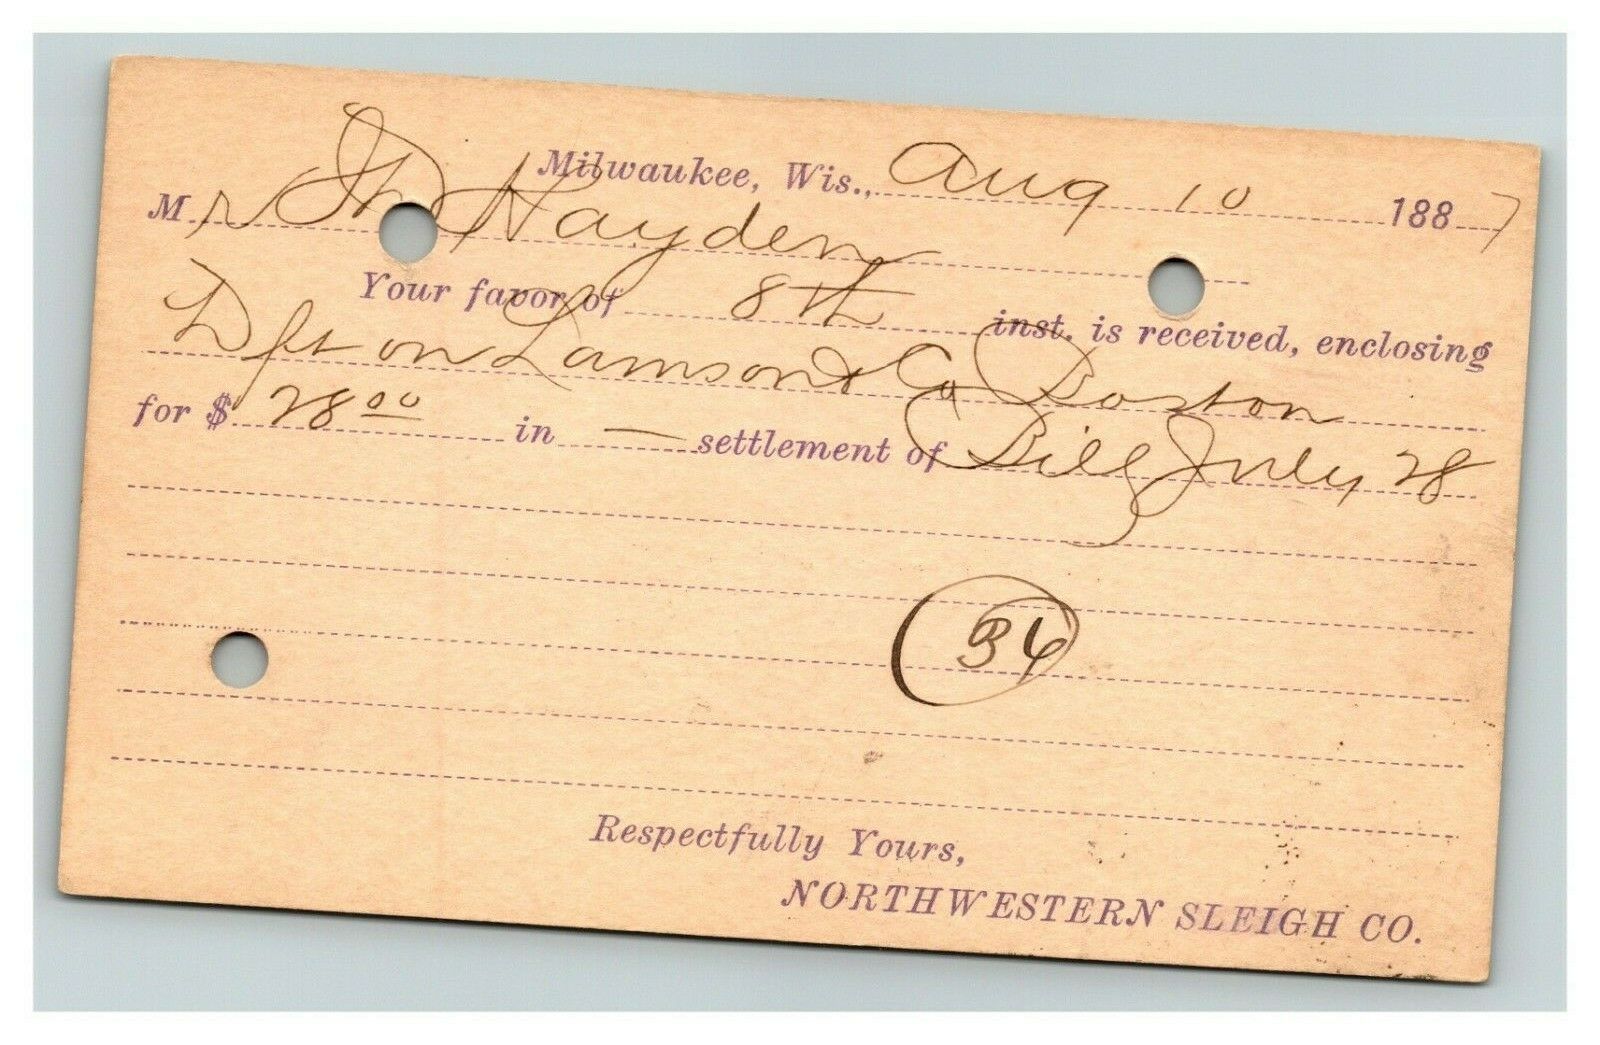 Milwaukee, Wis., Aug 10 1887
Mr Hayden
Your favor of 8th inst. is received, enclosing
Dft on Lamson & Co Boston
for $ 28 00 in — settlement of Bill July 28
34
Respectfully Yours,
NORTHWESTERN SLEIGH CO.